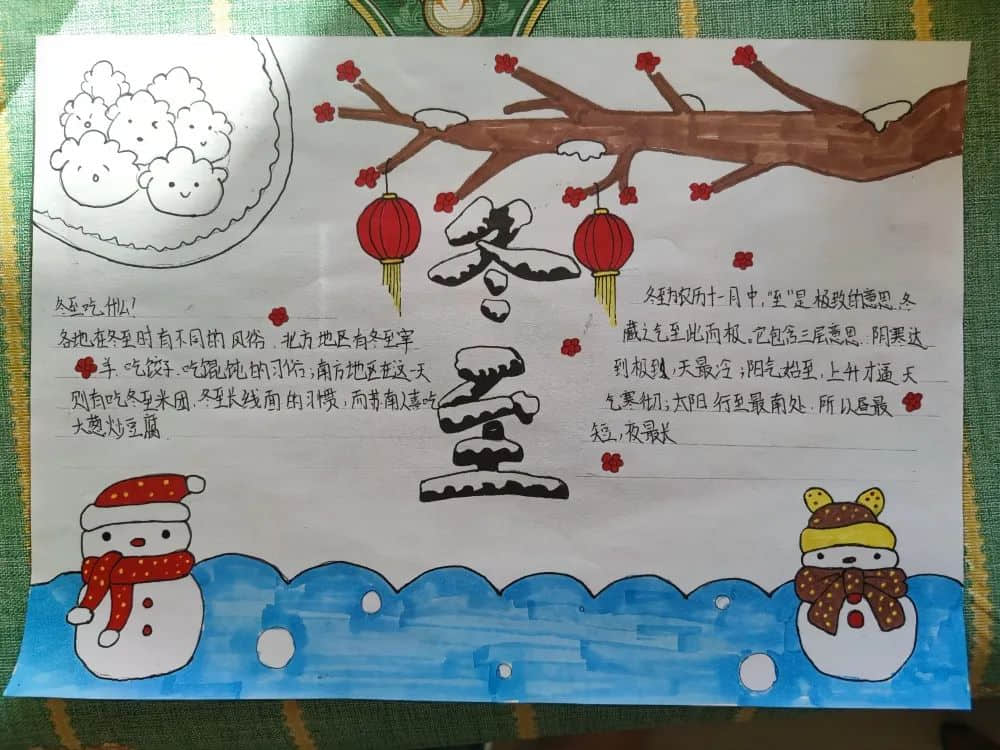 冬至
冬至吃什么?
各地在冬至时有不同的风俗.北方地区有冬至宰
羊.吃饺子.吃馄饨的习俗;南方地区在这一天
则有吃冬至米团.冬至长线面的习惯,而苏南人喜吃
大葱炒豆腐.
冬至为农历十一月中,“至”是极致的意思.冬
藏之气至此而极。它包含三层意思.阴寒达
到极致,天最冷;阳气始至,上升才通天
气寒彻;太阳行至最南处.所以昼最
短,夜最长